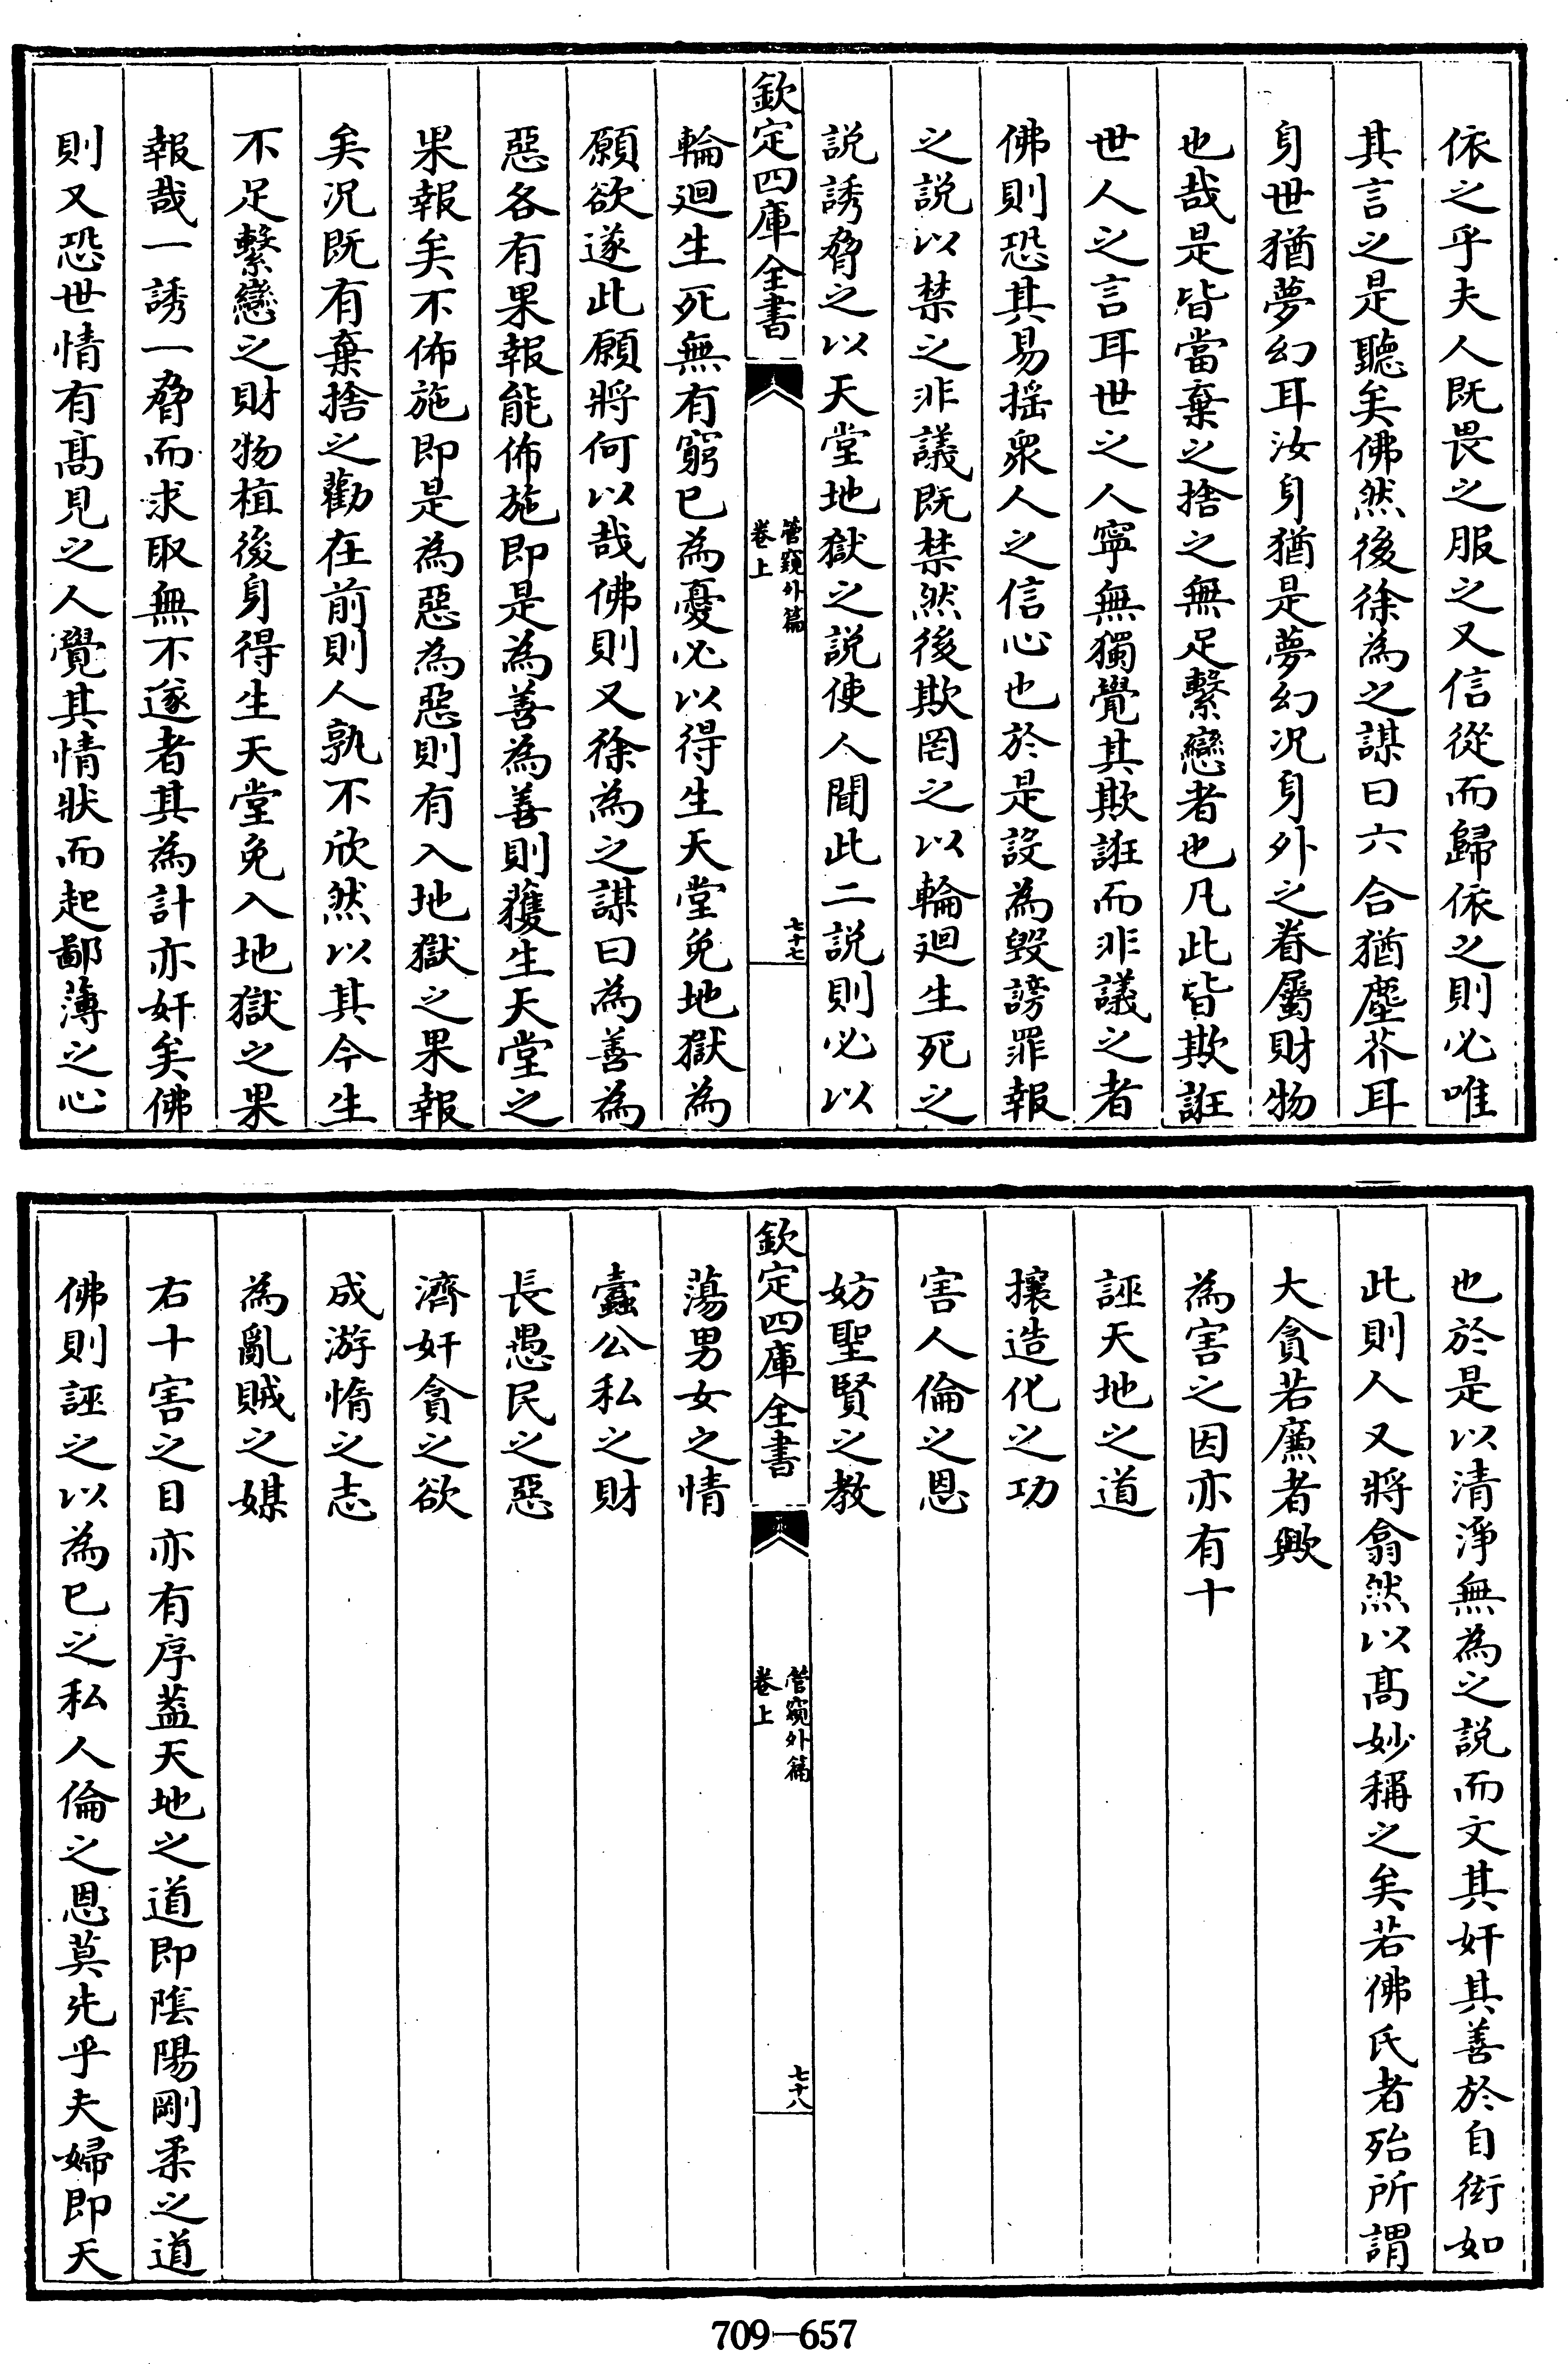 依之乎夫人既畏之服之又信從而歸依之則必唯
其言之是聽矣佛然後徐為之謀曰六合猶塵芥耳
身世猶夢幻耳汝身猶是夢幻况身外之眷屬財物
也哉是皆當棄之捨之無足繫戀者也凡此皆欺誑
世人之言耳世之人寧無獨覺其欺誑而非議之者
佛則恐其易揺衆人之信心也於是設為毀謗罪報
之説以禁之非議既禁然後欺罔之以輪廻生死之
説誘脅之以天堂地獄之説使人聞此二説則必以
欽定四庫全書
管窺外篇
卷上
七十七
輪廻生死無有窮已為憂必以得生天堂免地獄為
願欲遂此願將何以哉佛則又徐為之謀曰為善為
惡各有果報能佈施即是為善為善則獲生天堂之
果報矣不佈施即是為惡為惡則有入地獄之果報
矣况既有棄捨之勸在前則人孰不欣然以其今生
不足繫戀之財物植後身得生天堂免入地獄之果
報哉一誘一脅而求取無不遂者其為計亦奸矣佛
則又恐世情有髙見之人覺其情狀而起鄙薄之心
也於是以清淨無為之説而文其奸其善於自衒如
此則人又將翕然以髙妙稱之矣若佛氏者殆所謂
大貪若廉者歟
為害之因亦有十
誣天地之道
攘造化之功
害人倫之恩
妨聖賢之教
欽定四庫全書
管窺外篇
卷上
七十八
蕩男女之情
蠧公私之財
長愚民之惡
濟奸貪之欲
成游惰之志
為亂賊之媒
右十害之目亦有序葢天地之道即陰陽剛柔之道
佛則誣之以為已之私人倫之恩莫先乎夫婦即天
709-657